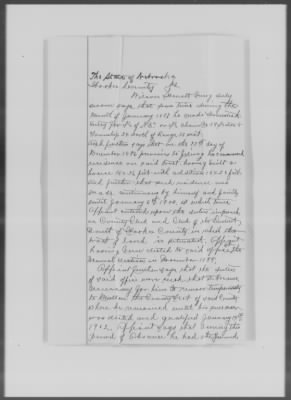 The State of Nebraska
County } ss.
Wilson Bennett being duly
sworn says that some time during the
Month of January 1898 he made Homestead
Entry for
Township 34 North of Range 15 west.
And further says that on the day of
November 189 previous to filing he assumed
residence on said tract having built a
house 14x16 feet with addition 12x21 feet
And further that such residence was
made continuous by himself and family
until January 5th 1900, at which time
Affiant entered upon the duties imposed
as County Clerk and Clerk of the District
Court of County in which the
tract of land is situated, Affiant
having been elected to said office at the
General election in November 1899.
Affiant further says that the duties
of said office were such that it became
necessary for him to remove temporarily
to the County Seat of said County
where he remained until his successor
was elected and qualified January
1902. Affiant says that during the
period of his he had